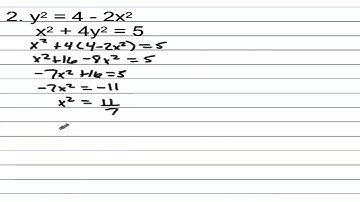 2. y² = 4 - 2x²
x² + 4y² = 5
x² + 4(4-2x²) = 5
x² + 16 - 8x² = 5
-7x² + 16 = 5
-7x² = -11
x² = 11/7